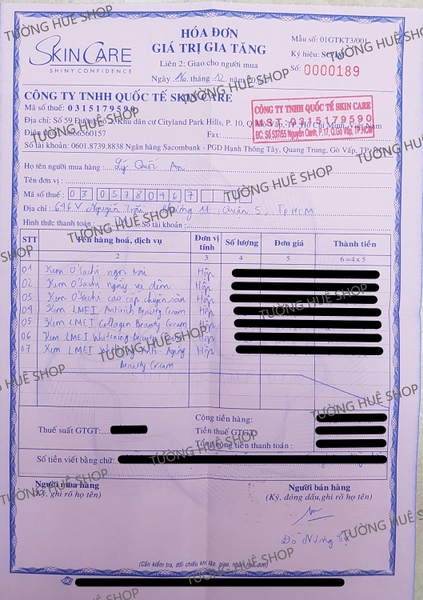 HÓA ĐƠN
GIÁ TRỊ GIA TĂNG
Liên 2: Giao cho người mua
Ngày 16 tháng 12
Mẫu số: 01GTKT3/001
Ký hiệu:
Số: 0000189
SKINCARE
SHINY CONFIDENCE
CÔNG TY TNHH QUỐC TẾ SKIN CARE
Mã số thuế: 0315179590
Địa chỉ: Số 59 Đường Khu dân cư Cityland Park Hills, P. 10, Q. Nam
Điện 66560157 Fax:
Số tài khoản: 0601.8739.8838 Ngân hàng Sacombank - PGD Hạnh Thông Tây, Quang Trung, Gò Vấp, TP.HCM
CÔNG TY TNHH QUỐC TẾ SKIN CARE
M.S.T: 0315179590
ĐC: Số 537/55 Nguyễn Oanh, P.17, Q.Gò Vấp, TP.HCM
Họ tên người mua hàng: Lý Quốc An
Tên đơn vị:
Mã số thuế: 0305780467
Địa chỉ: Nguyễn Trãi, Phường 11, Quận 5, Tp HCM
Hình thức thanh toán: Số tài khoản:
STT Tên hàng hoá, dịch vụ Đơn vị tính Số lượng Đơn giá Thành tiền
2 3 4 5 6 = 4 x 5
01 Kem O'Sachi ngọc trai Hộp
02 Kem O'Sachi ngày và đêm Hộp
03 Kem O'Sachi cao cấp Hộp
04 Kem LMEI Beauty Cream Hộp
05 Kem LMEI Collagen Beauty Cream Hộp
06 Kem LMEI Whitening Beauty Hộp
07 Kem LMEI Aging Hộp
Beauty Cream
Cộng tiền hàng:
Thuế suất GTGT: Tiền thuế GTGT:
Tổng cộng tiền thanh toán:
Số tiền viết bằng chữ:
Người mua hàng Người bán hàng
(Ký, ghi rõ họ tên) (Ký, đóng dấu, ghi rõ họ tên)
(Cần kiểm tra, đối chiếu khi lập, giao, nhận hoá đơn)
TƯỜNG HUÊ SHOP